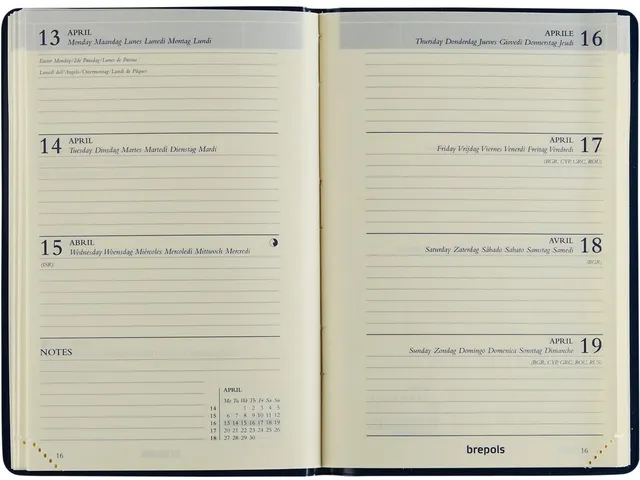 13 APRIL
Monday Maandag Lunes Lunedì Montag Lundi
Easter Monday/2de Paasdag/Lunes de Pascua
Lunedì dell'Angelo/Ostermontag/Lundi de Pâques
14 APRIL
Tuesday Dinsdag Martes Martedì Dienstag Mardi
15 ABRIL
Wednesday Woensdag Miércoles Mercoledì Mittwoch Mercredi
(ISR)
NOTES
APRIL
Mo Tu We Th Fr Sa Su
14 1 2 3 4 5
15 6 7 8 9 10 11 12
16 13 14 15 16 17 18 19
17 20 21 22 23 24 25 26
18 27 28 29 30
16
APRILE 16
Thursday Donderdag Jueves Giovedì Donnerstag Jeudi
APRIL 17
Friday Vrijdag Viernes Venerdì Freitag Vendredi
(BGR, CYP, GRC, ROU)
AVRIL 18
Saturday Zaterdag Sábado Sabato Samstag Samedi
(BGR)
APRIL 19
Sunday Zondag Domingo Domenica Sonntag Dimanche
(BGR, CYP, GRC, ROU, RUS)
brepols
16